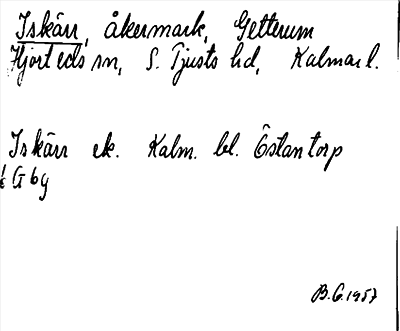 Iskärr, åkermark, Getterum
Hjorteds sn, S. Tjusts hd, Kalmar l.
Iskärr ek. Kalm. bl. Östantorp
G 6g
B.G. 1957